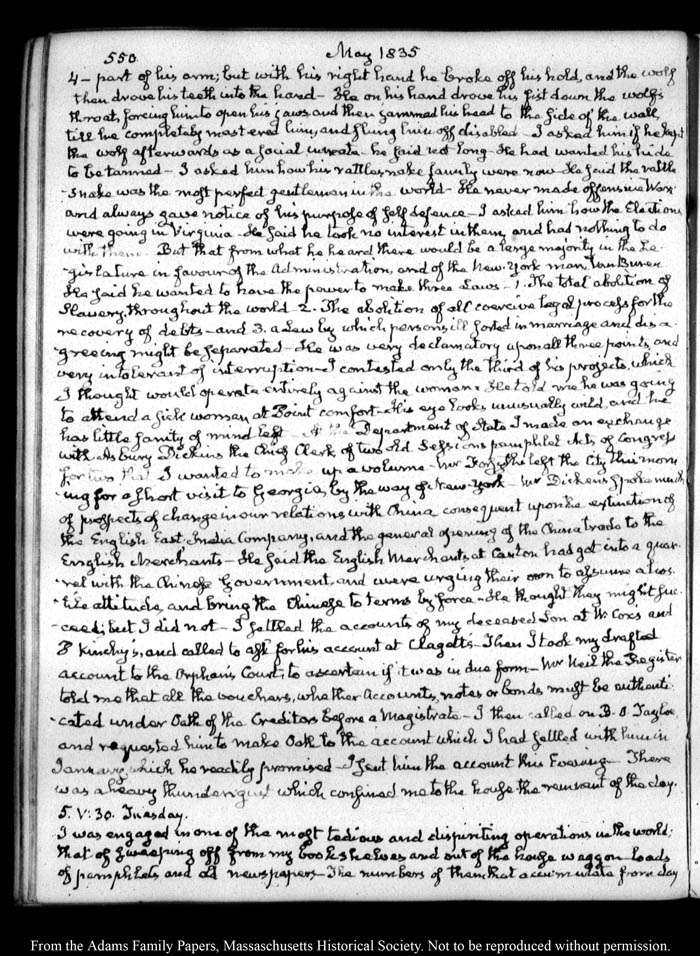 550. May 1835
4 — part of his arm; but with his right hand he broke off his hold, and the wolf
then drove his teeth into the hand — He on his hand drove his fist down the wolf's
throat, forcing him to open his jaws and then jammed his head to the side of the wall,
till he completely mastered him, and flung him off disabled — I asked him if he kept
the wolf afterwards as a social inmate — he said not long — He had wanted his hide
to be tanned — I asked him how his rattlesnake family were now — He said the rattle
-snake was the most perfect gentleman in the world — He never made offensive War
and always gave notice of his purpose of self defence — I asked him how the Elections
were going in Virginia — He said he took no interest in them, and had nothing to do
with them. But that from what he heard there would be a large majority in the Le-
-gislature in favour of the Administration, and of the New-York man, Van Buren
He said he wanted to have the power to make three Laws — 1. The total abolition of
Slavery, throughout the world 2. The abolition of all coercive legal process for the
recovery of debts — and 3. a Law by which persons ill sorted in marriage and disa-
-greeing might be separated — He was very declamatory upon all three points, and
very intolerant of interruption — I contested only the third of his projects, which
I thought would operate entirely against the woman. He told me he was going
to attend a sick woman at Point comfort — His eye looks unusually wild, and he
has little sanity of mind left — At the Department of State I made an exchange
with Asbury Dickins the Chief Clerk of two old Sessions pamphlet Acts of Congress
for two that I wanted to make up a volume — Mr Forsyth left the City this morn-
-ing for a short visit to Georgia, by the way of New-York — Mr Dickins spoke much
of prospects of change in our relations with China consequent upon the extinction of
the English East, India Company, and the general opening of the China trade to the
English Merchants — He said the English Merchants, at Canton had got into a quar-
-rel with the Chinese Government, and were urging their own to assume a hos-
-tile attitude, and bring the Chinese to terms by force — He thought they might suc-
-ceed; but I did not — I settled the accounts of my deceased Son at W. Cox's and
B Kinchy's, and called to ask for his account at Clagett's — Then I took my drafted
account to the Orphan's Court, to ascertain if it was in due form — Mr Neil the Register
told me that all the vouchers, whether Accounts, notes or bonds must be authenti-
-cated under Oath of the Creditors before a Magistrate — I then called on B. O. Tayloe,
and requested him to make Oath to the account which I had settled with him in
January, which he readily promised — I sent him the account this Evening — There
was a heavy thundergust which confined me to the house the remnant of the day.
5. V:30. Tuesday.
I was engaged in one of the most tedious and dispiriting operations in the world;
that of sweeping off from my bookshelves and out of the house waggon loads
of pamphlets and old newspapers — The numbers of them that accumulate from day
From the Adams Family Papers, Massaschusetts Historical Society. Not to be reproduced without permission.